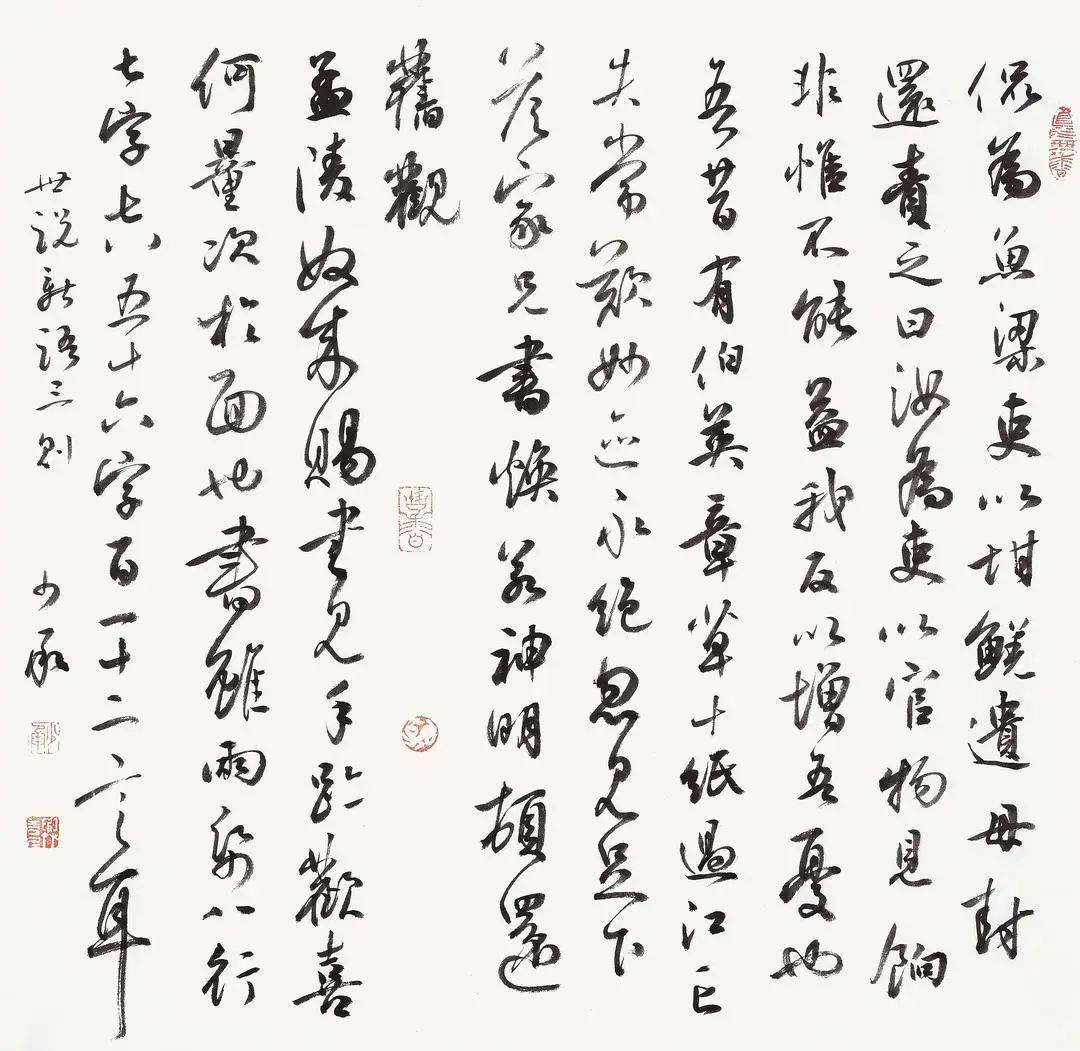 侃為魚梁吏以坩鮺遺母封
還責之曰汝為吏以官物見餉
非惟不能益我反以增吾憂也
吾昔有伯英章草十紙過江亡
失常歎妙迹永絕忽見足下
答家兄書煥若神明頓還
舊觀
孟陵奴來賜書見手跡歡喜
何量次於面也書雖兩紙八行
七字七八五十六字百一十二言耳
世說新語三則